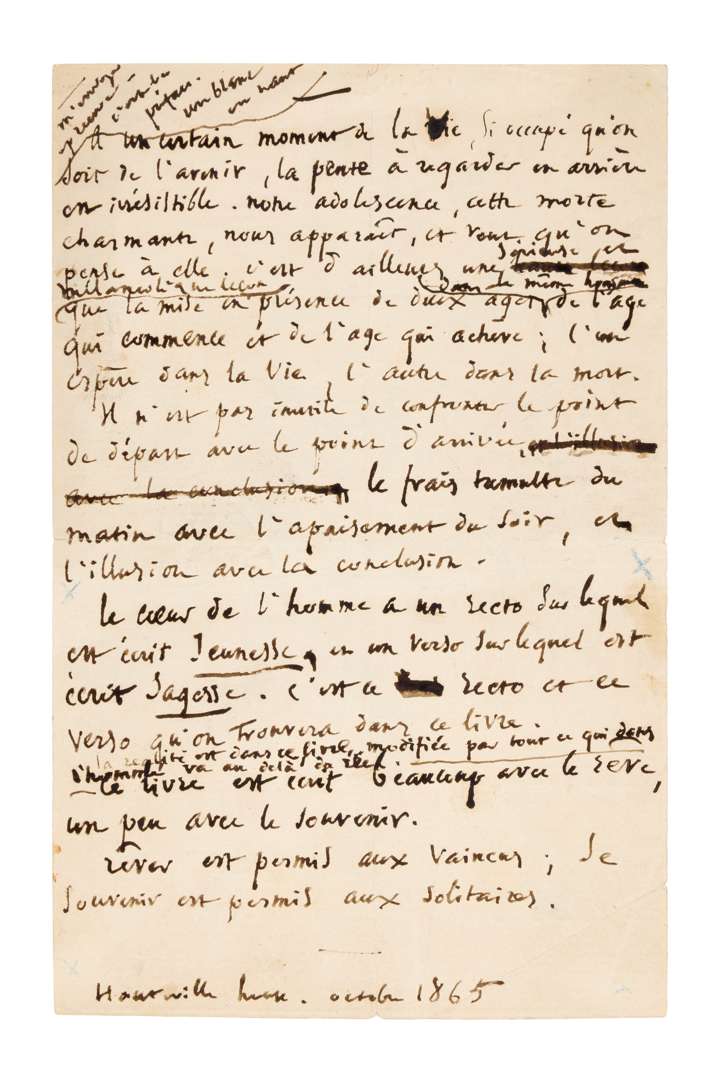 c'est la
préface.
un blanc
en haut
A un certain moment de la vie, si occupé qu'on
soit de l'avenir, la pente à regarder en arrière
est irrésistible. notre adolescence, cette morte
charmante, nous apparaît, et veut qu'on
sérieuse et
pense à elle. c'est d'ailleurs une
mélancolique leçon dans le même homme,
que la mise en présence de deux ages, de l'age
qui commence et de l'age qui achève ; l'un
espère dans la vie, l'autre dans la mort.
Il n'est pas inutile de confronter le point
de départ avec le point d'arrivée, et l'illusion
avec la conclusion, le frais tumulte du
matin avec l'apaisement du soir, et
l'illusion avec la conclusion.
le cœur de l'homme a un recto sur lequel
est écrit Jeunesse, et un verso sur lequel est
écrit Sagesse. C'est ce recto et ce
verso qu'on trouvera dans ce livre.
la réalité est dans ce livre, modifiée par tout ce qui dans
l'homme va au delà du réel.
Ce livre est écrit beaucoup avec le rêve,
un peu avec le souvenir.
rêver est permis aux vaincus ; se
souvenir est permis aux solitaires.
Hauteville house. octobre 1865